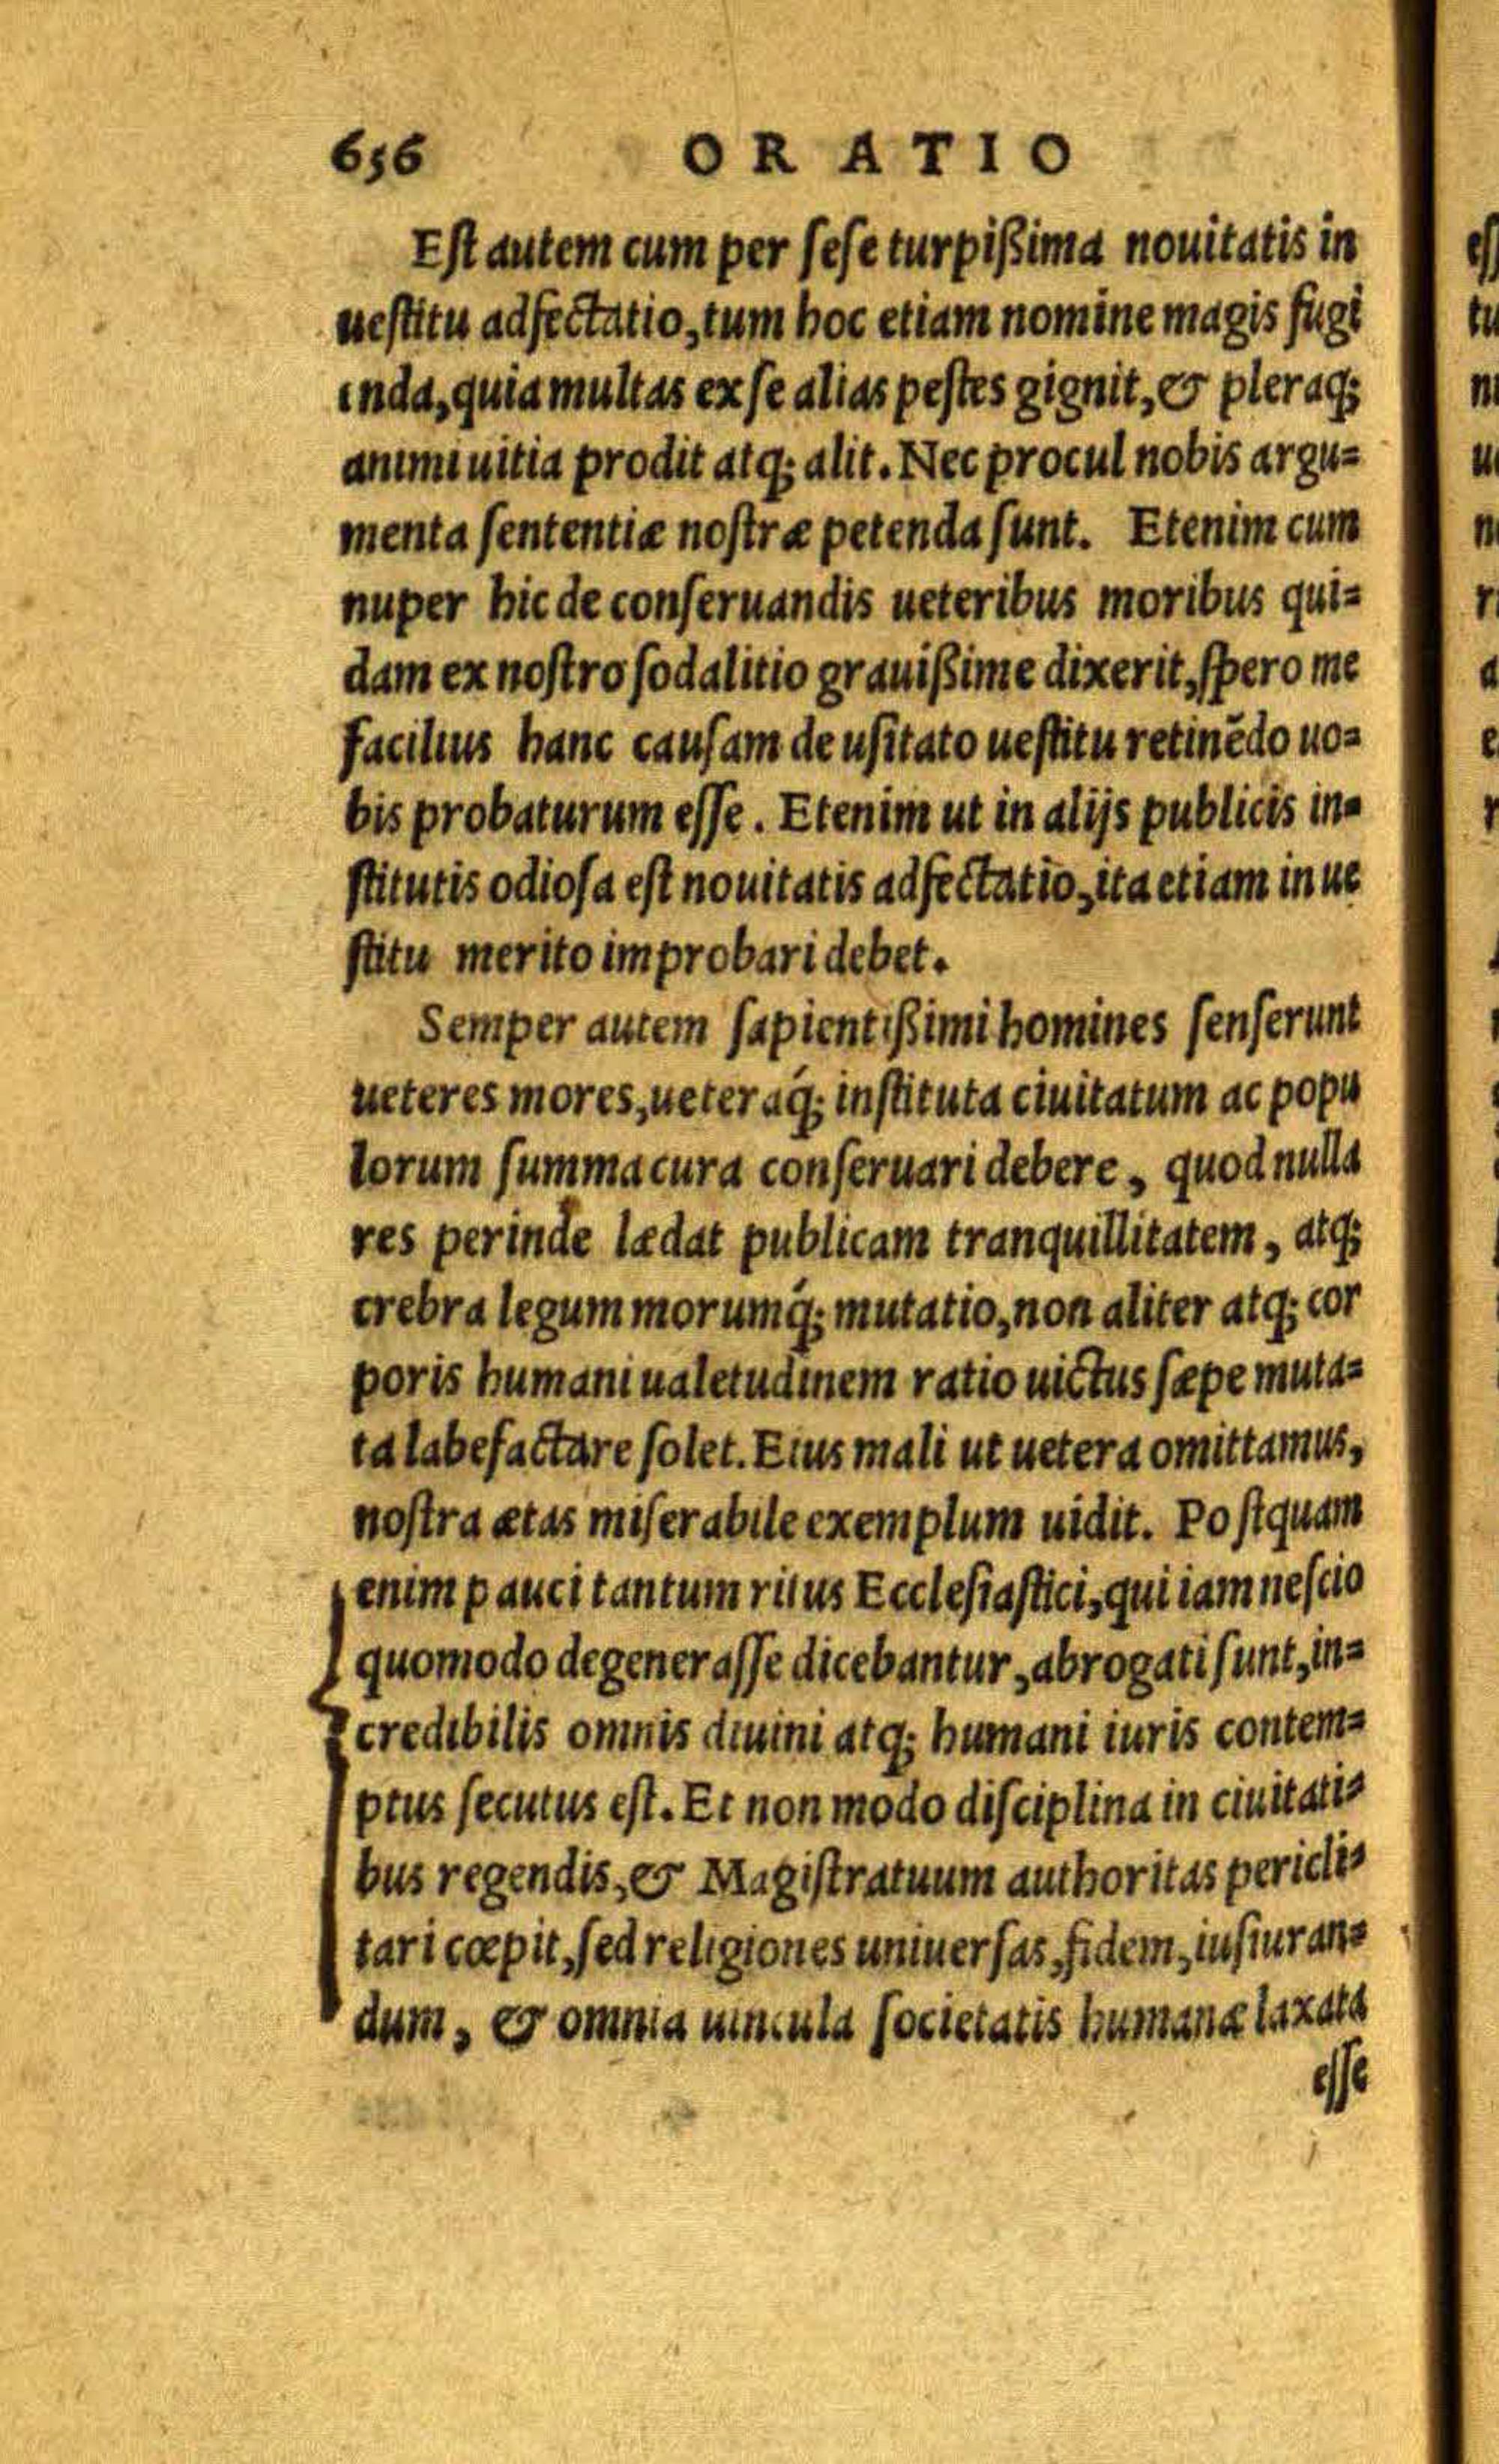 656 ORATIO
Eſt autem cum per ſeſe turpißima nouitatis in
ueſtitu adfectatio, tum hoc etiam nomine magis fugi
enda, quia multas ex ſe alias peſtes gignit, & pleraq;
animi uitia prodit atq; alit. Nec procul nobis argu=
menta ſententiæ noſtræ petenda ſunt. Etenim cum
nuper hic de conſeruandis ueteribus moribus qui=
dam ex noſtro ſodalitio grauißime dixerit, ſpero me
facilius hanc cauſam de uſitato ueſtitu retinēdo uo=
bis probaturum eſſe. Etenim ut in alijs publicis in=
ſtitutis odioſa eſt nouitatis adfectatio, ita etiam in ue
ſtitu merito improbari debet.
Semper autem ſapientißimi homines ſenſerunt
ueteres mores, ueteraq́; inſtituta ciuitatum ac popu
lorum ſumma cura conſeruari debere, quod nulla
res perinde lædat publicam tranquillitatem, atq;
crebra legum morumq́; mutatio, non aliter atq; cor
poris humani ualetudinem ratio uictus ſæpe muta=
ta labefactare ſolet. Eius mali ut uetera omittamus,
noſtra ætas miſerabile exemplum uidit. Poſtquam
enim pauci tantum ritus Eccleſiaſtici, qui iam neſcio
quomodo degeneraſſe dicebantur, abrogati ſunt, in=
credibilis omnis diuini atq; humani iuris contem=
ptus ſecutus eſt. Et non modo diſciplina in ciuitati=
bus regendis, & Magiſtratuum authoritas pericli=
tari cœpit, ſed religiones uniuerſas, fidem, iuſiuran=
dum, & omnia uincula ſocietatis humanæ laxata
eſſe